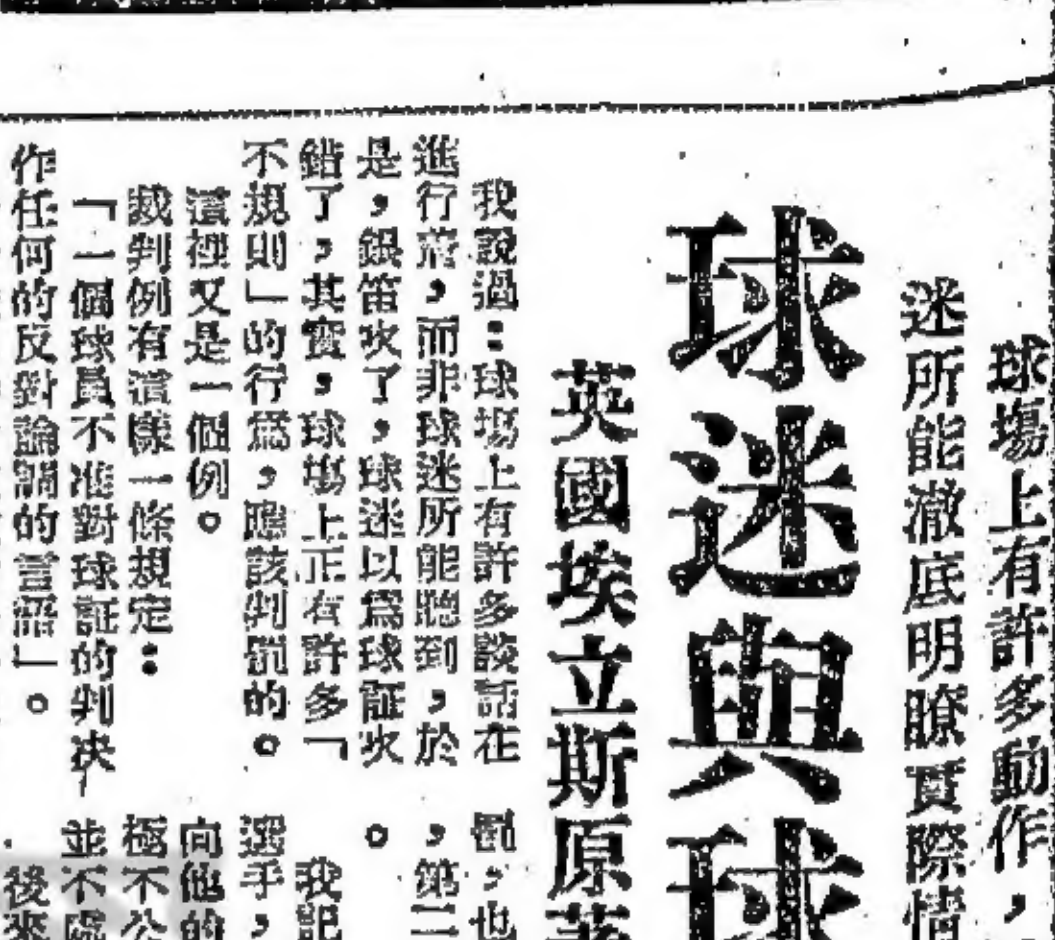 球場上有許多動作，
迷所能澈底明瞭實際情
球迷與球
英國埃立斯原著
我說過：球場上有許多談話在
進行着，而非球迷所能聽到，於
是，銀笛吹了，球迷以爲球証吹
錯了，其實，球塲上正有許多「
不規則」的行爲，應該判罰的。
這裡又是一個例。
裁判例有這樣一條規定：
「一個球員不准對球証的判决
作任何的反對論調的言語」。
，也
，第二
。
我記
選手，
向他的
極不公
並不處
後來